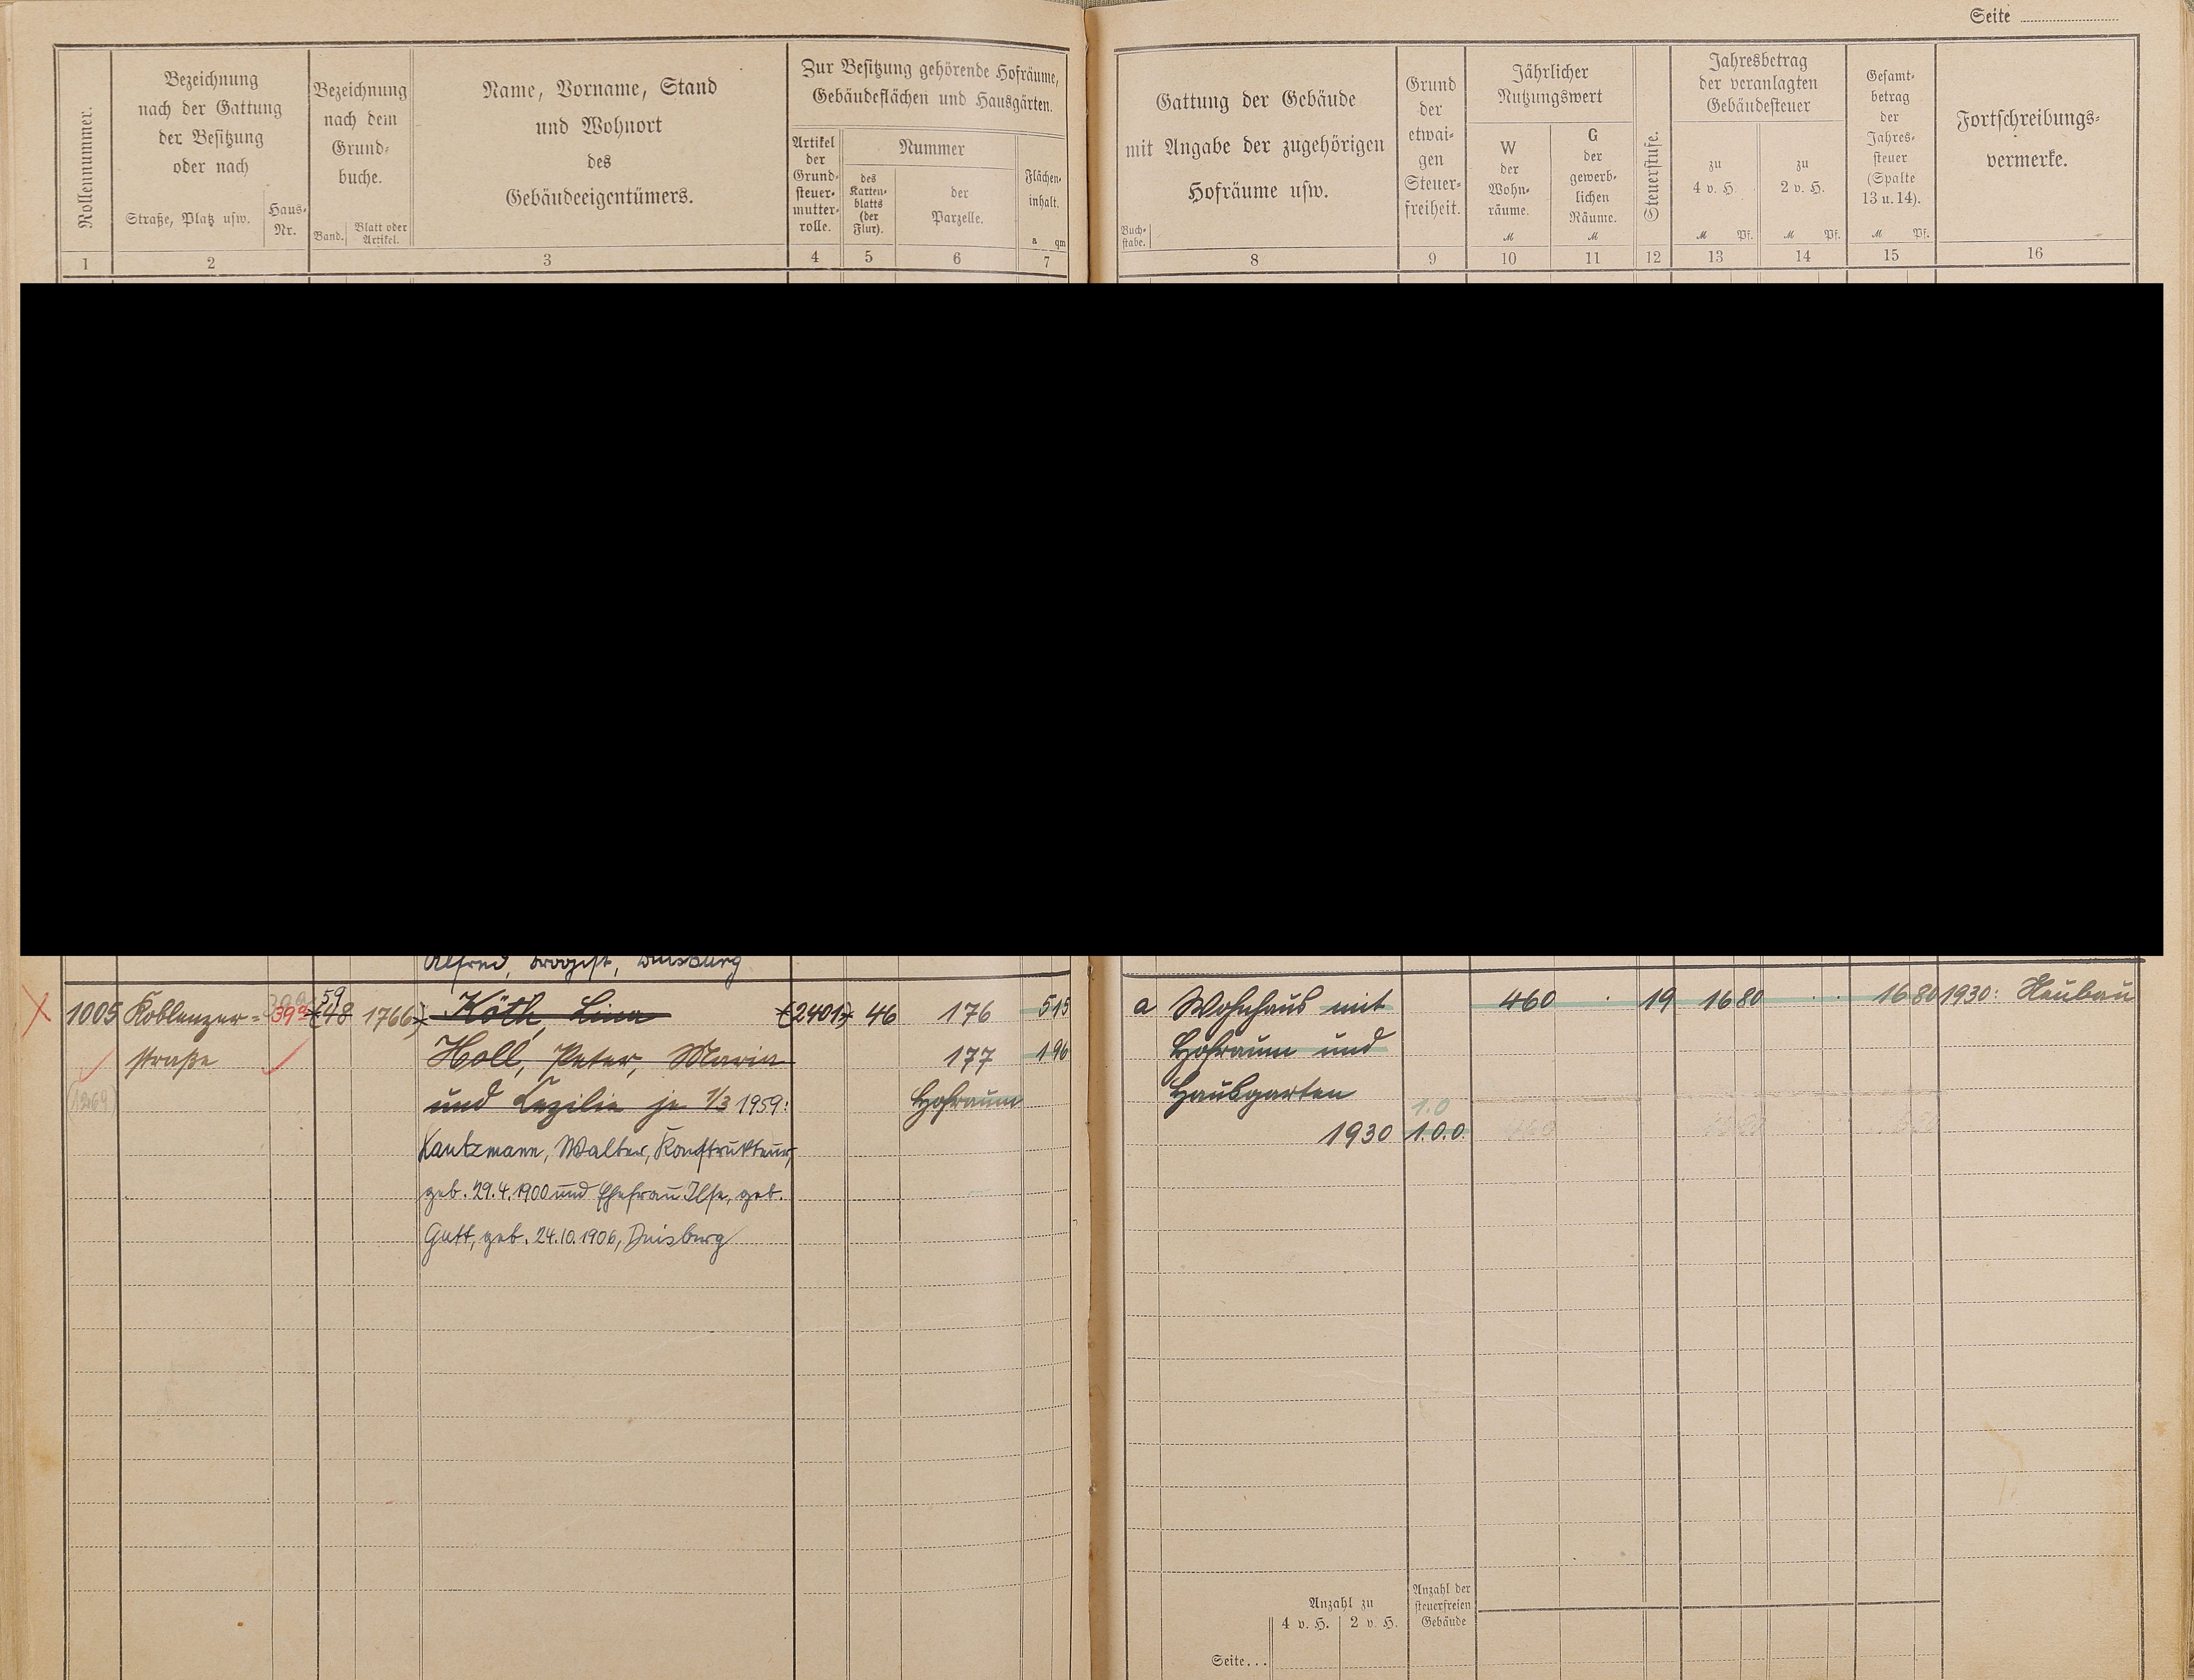 Seite
Rollennummer.
Bezeichnung
nach der Gattung
der Besitzung
oder nach
Straße, Platz usw.
Haus-
Nr.
Bezeichnung
nach dem
Grund-
buche.
Band.
Blatt oder
Artikel.
Name, Vorname, Stand
und Wohnort
des
Gebäudeeigentümers.
Zur Besitzung gehörende Hofräume,
Gebäudeflächen und Hausgärten.
Artikel
der
Grund-
steuer-
mutter-
rolle.
Nummer
des
Karten-
blatts
(der
Flur).
der
Parzelle.
Flächen-
inhalt.
a qm
Gattung der Gebäude
mit Angabe der zugehörigen
Hofräume usw.
Buch-
stabe.
Grund
der
etwai-
gen
Steuer-
freiheit.
Jährlicher
Nutzungswert
W
der
Wohn-
räume.
M
G
der
gewerb-
lichen
Räume.
M
Steuerstufe.
Jahresbetrag
der veranlagten
Gebäudesteuer
zu
4 v. H.
M Pf.
zu
2 v. H.
M Pf.
Gesamt-
betrag
der
Jahres-
steuer
(Spalte
13 u. 14).
M Pf.
Fortschreibungs-
vermerke.
1 2 3 4 5 6 7 8 9 10 11 12 13 14 15 16
Alfred, Drogist, Duisburg
59
1005 Koblenzer- 39a (48 1766) Köth, Lina (2401) 46 176 515 a Wohnhaus mit 460 19 16 80 16 80 1930: Neubau
straße Holl, Peter, Maria 177 196 Hofraum und
(1269) und Cezilie je 1/3 1959: Hofraum Hausgarten
1.0
Kautzmann, Walter, Konstrukteur, 1930 1.0.0.
geb. 29.4.1900 und Ehefrau Ilse, geb.
Gutt, geb. 24.10.1906, Duisburg
Anzahl zu
4 v. H. 2 v. H.
Anzahl der
steuerfreien
Gebäude
Seite...